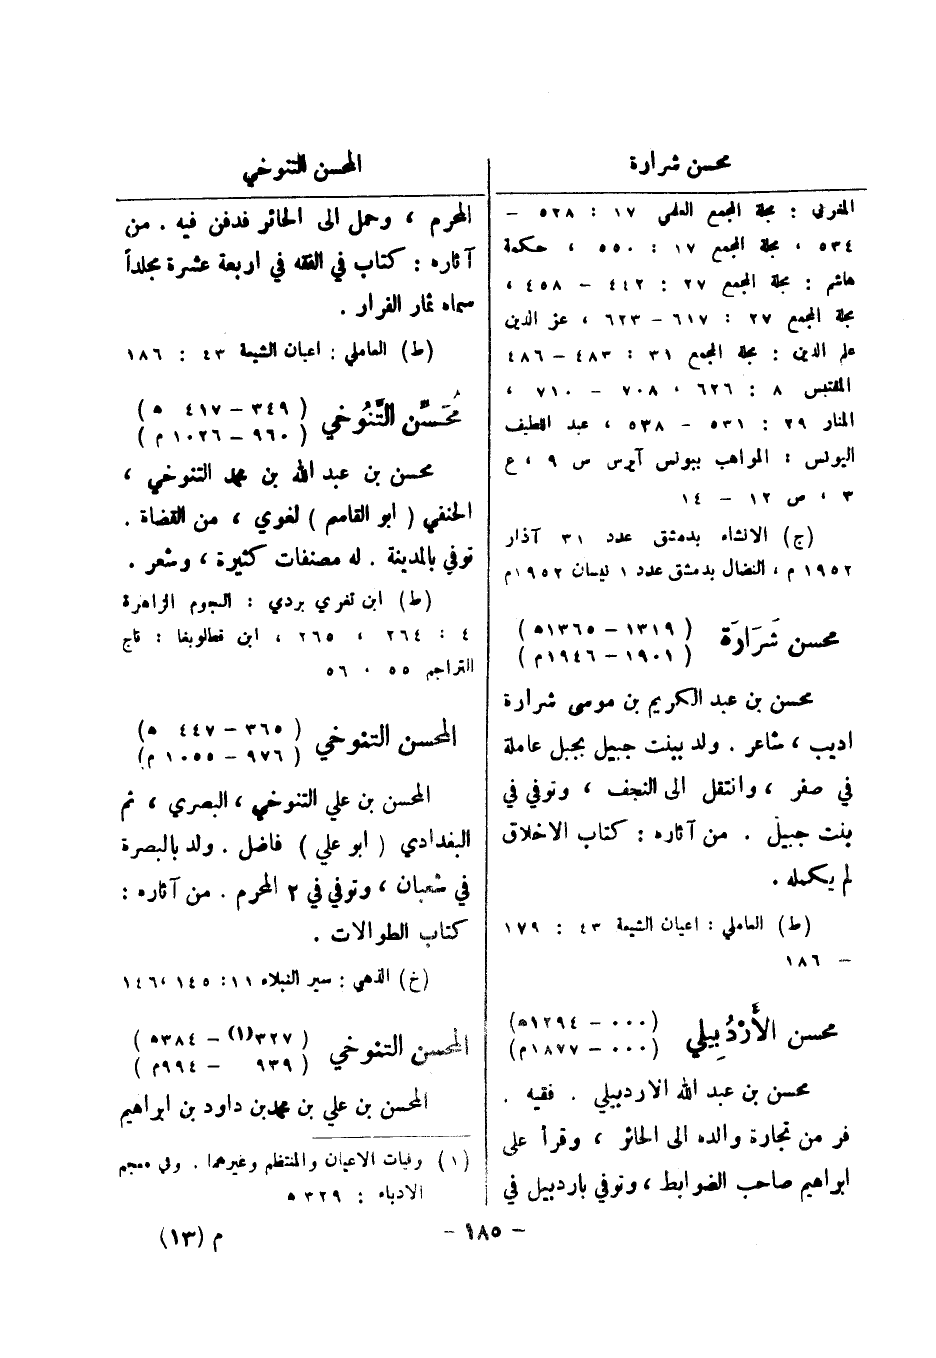 محسن شرارة
المغربي : مجلة المجمع العلمي ١٧ : ٥٢٨ –
٥٣٤ ، مجلة المجمع ١٧ : ٥٥٠ ، حكمة
هاشم : مجلة المجمع ٢٧ : ٤٤٢ – ٤٥٨ ،
مجلة المجمع ٢٧ : ٦١٧ – ٦٢٣ ، عز الدين
علم الدين : مجلة المجمع ٣١ : ٤٨٣ – ٤٨٦
المقتبس ٨ : ٦٢٦ ، ٧٠٨ – ٧١٠ ،
المنار ٢٩ : ٥٣١ – ٥٣٨ ، عبد اللطيف
اليونس : المواهب ببونس آيرس س ٩ ، ع
٣ ، ص ١٢ – ١٤
(ج) الانشاء بدمشق عدد ٣١ آذار
١٩٥٢ م ، النضال بدمشق عدد ١ نيسان ١٩٥٢م
محسن شَرَارَة ( ١٣١٩ – ١٣٦٥ه )
( ١٩٠١ – ١٩٤٦م )
محسن بن عبد الكريم بن موسى شرارة
اديب ، شاعر . ولد ببنت جبيل بجبل عاملة
في صفر ، وانتقل الى النجف ، وتوفي في
بنت جبيل . من آثاره : كتاب الاخلاق
لم يكمله .
(ط) العاملي : اعيان الشيعة ٤٣ : ١٧٩
– ١٨٦
محسن الأَرْدُبِيلي (٠٠٠ – ١٢٩٤ه)
(٠٠٠ – ١٨٧٧م)
محسن بن عبد الله الاردبيلي . فقيه .
فر من تجارة والده الى الحائر ، وقرأ على
ابراهيم صاحب الضوابط ، وتوفي باردبيل في
المحسن التنوخي
المحرم ، وحمل الى الحائر فدفن فيه . من
آثاره : كتاب في الفقه في اربعة عشرة مجلداً
سماه ثمار الفرار .
(ط) العاملي : اعيان الشيعة ٤٣ : ١٨٦
مُحَسِّن التَّنُوخي ( ٣٤٩ – ٤١٧ ه )
( ٩٦٠ – ١٠٢٦ م )
محسن بن عبد الله بن محمد التنوخي ،
الحنفي ( ابو القاسم ) لغوي ، من القضاة .
توفي بالمدينة . له مصنفات كثيرة ، وشعر .
(ط) ابن تغري بردي : النجوم الزاهرة
٤ : ٢٦٤ ، ٢٦٥ ، ابن قطلوبغا : تاج
التراجم ٥٥ ، ٥٦
المحسن التنوخي ( ٣٦٥ – ٤٤٧ ه )
( ٩٧٦ – ١٠٥٥ م )
المحسن بن علي التنوخي ، البصري ، ثم
البغدادي ( ابو علي ) فاضل . ولد بالبصرة
في شعبان ، وتوفي في ٢ المحرم . من آثاره :
كتاب الطوالات .
(خ) الذهبي : سير النبلاء ١١ : ١٤٥ ، ١٤٦
المحسن التنوخي ( ٣٢٧(١) – ٣٨٤ه )
( ٩٣٩ – ٩٩٤م )
المحسن بن علي بن محمد بن داود بن ابراهيم
(١) وفيات الاعيان والمنتظم وغيرهما . وفي معجم
الادباء : ٣٢٩ ه
– ١٨٥ –
م (١٣)